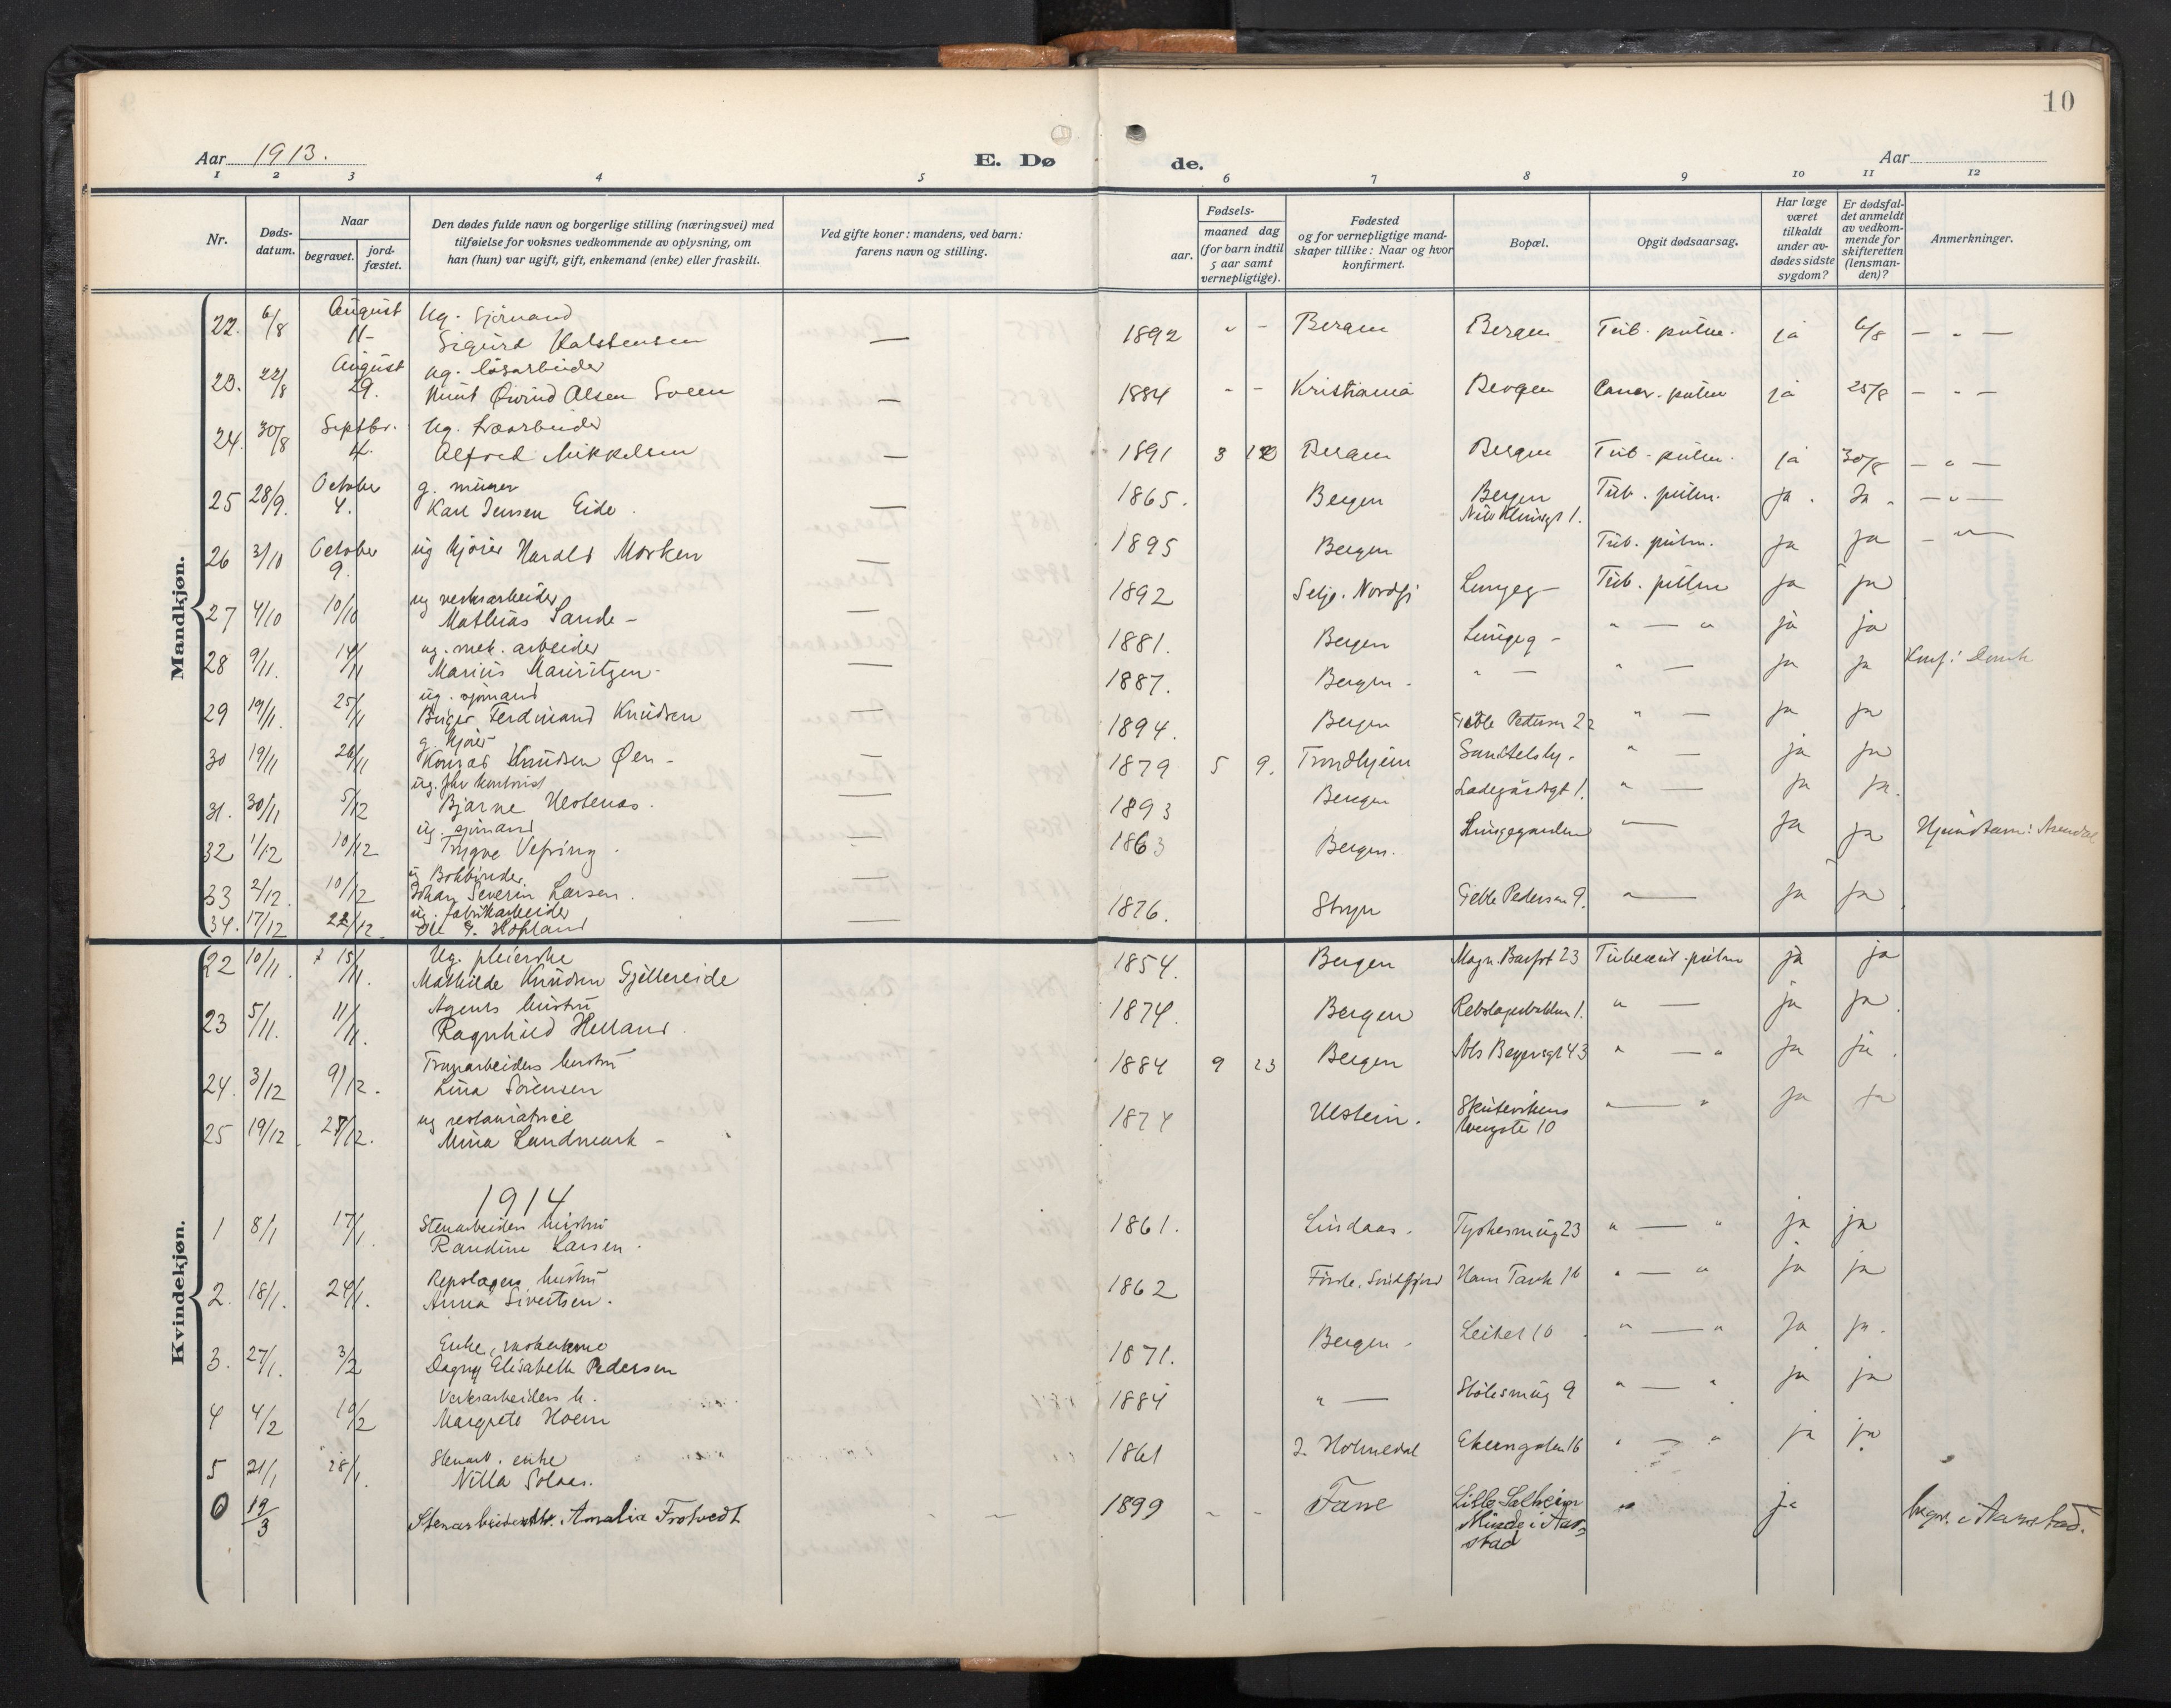 10
Aar 1913.
E. Dø
de.
Aar
1 2 3 4 5 6 7 8 9 10 11 12
Nr.
Døds-
datum.
Naar
begravet.
jord-
fæstet.
Den dødes fulde navn og borgerlige stilling (næringsvei) med
tilføielse for voksnes vedkommende av oplysning, om
han (hun) var ugift, gift, enkemand (enke) eller fraskilt.
Ved gifte koner: mandens, ved barn:
farens navn og stilling.
aar.
Fødsels-
maaned dag
(for barn indtil
5 aar samt
vernepligtige).
Fødested
og for vernepligtige mand-
skaper tillike: Naar og hvor
konfirmert.
Bopæl.
Opgit dødsaarsag.
Har læge
været
tilkaldt
under av-
dødes sidste
sygdom?
Er dødsfal-
det anmeldt
av vedkom-
mende for
skifteretten
(lensman-
den)?
Anmerkninger.
Mandkjøn.
22. 6/8 August 11- Ug. Sjømand
Sigurd Karstensen — 1892 " - Bergen Bergen Tub. pulm. ja 6/8 — " —
23. 22/8 August 29. ug. løsarbeider
Knut Øivind Olsen Sveen — 1884 - - Kristiania Bergen Cancr. pulm ja 25/8 — " —
24. 30/8 Septbr. 4. Ug.
Alfred Mikkelsen — 1891 3 Bergen Bergen Tub. pulm. ja 30/8 — " —
25 28/9. October 4. g. murer
Karl Jensen Eide. — 1865. Bergen Bergen Tub. pulm. ja. Ja. — " —
26 3/10 October 9. ug kjører Harald Morken — 1895 Bergen Tub. pulm. ja ja — " —
27 4/10 10/10 ug verksarbeider
Mathias Sande — 1892 Selje. Nordfj Lungeg— Tub. pulm ja ja
28 9/11. 14/11 ug. mek. arbeider
Marius Mauritzen — 1881. Bergen Lungeg - " — " ja ja
29 19/11. 25/11 ug. sjømand
Birger Ferdinand Knudsen — 1887. Bergen. " — " — ja ja
30 19/11 26/11 g. kjører
Konrad Knudsen Øen — 1894. Bergen Geble Pederson 22 " — ja ja
31. 30/11 5/12 ug. fhv kontorist
Bjarne — 1879 5 9. Trondhjem " — ja ja
32 1/12 10/12 ug. sjømand
Trygve — 1893 Bergen Ladegårdsgt 1. " — ja ja.
33 2/12. 10/12 ug Bokbinder
Johan Severin Larsen. — 1863 Bergen. Lungegaarden " — ja ja
34. 17/12 22/12. ug. fabrikarbeider
Ole Hopland — 1876. Stryn Geble Pederson 9. " — ja ja
Kvindekjøn.
22 10/11. 15/11. Ug. pleierske
Mathilde Knudsen Gjellereide 1854. Bergen Magn. Barfot 23 Tubercul. pulm ja ja
23 5/11. 11/11. Agents hustru
Ragnhild Helland. 1874. Bergen Rebslagerbakken 1. " — ja ja.
24. 3/12 9/12. hustru
Lina Sørensen 1884 9 23 Bergen 43 " — " ja ja.
25 19/12. 27/12. ug restauratrice
Mina Landmark - 1874 Ulstein. Skutevikens 10 " — " ja ja
1914
1 8/1 17/1. Stenarbeiders hustru
Randine Larsen. 1861. Lindaas. Tyskesmug 23 " — " ja ja
2. 18/1. 24/1. Repslagers hustru
Anna Sivertsen. 1862 Førde. Søndfjord Hans Tank 16 " — " ja ja
3. 27/1. 3/2 Enke,
Dagny Elisabeth Pedersen 1871. Bergen - Leitet 10 " — " ja ja.
4 4/2 10/2 Verksarbeiders h.
Margrete Hoem 1884 " — Stølesmug 9 " — " ja ja
5 21/1 28/1. enke
Nilla Solaas. 1861 I. Holmedal 16 " — " ja ja
6 19/3 Stenarbeider Amalia Frotvedt - — 1899 - - Fane Lille Solheim
Minde i Aar-
stad " ja begr. i Aarstad.